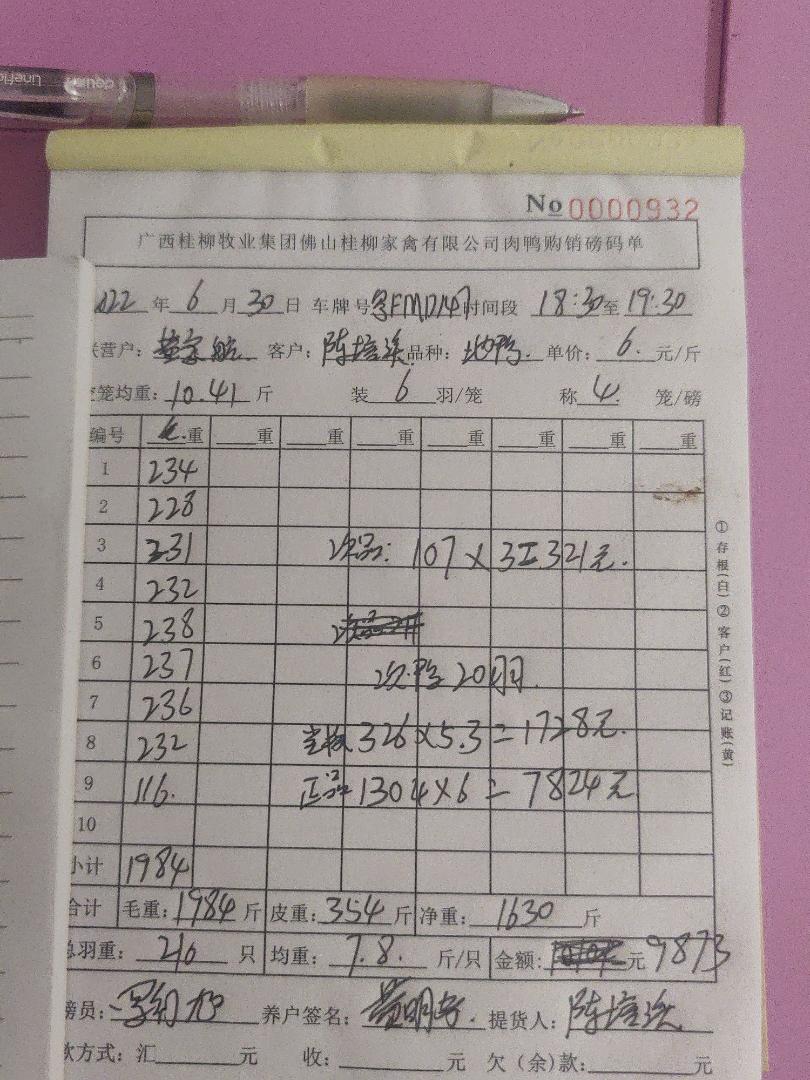 No 0000932
广西桂柳牧业集团佛山桂柳家禽有限公司肉鸭购销磅码单
022 年 6 月 30 日 车牌号 FMD147 时间段 18:30 至 19:30
营户: 客户: 陈培 品种: 单价: 6. 元/斤
笼均重: 10.41 斤 装 6 羽/笼 称 4. 笼/磅
编号 毛.重 重 重 重 重 重 重 重
1 234
2 228
3 231 次品: 107 X 3 = 321元.
4 232
5 238
6 237 次鸭 20
7 236
8 232 326 X 5.3 = 1728元.
9 116. 正品 1304 X 6 = 7824元
10
小计 1984
合计 毛重: 1984 斤 皮重: 354 斤 净重: 1630 斤
总羽重: 210 只 均重: 7.8. 斤/只 金额: 元 9873
磅员: 养户签名: 黄明 提货人: 陈培
款方式: 汇 元 收: 元 欠(余)款: 元
①存根(白)②客户(红)③记账(黄)